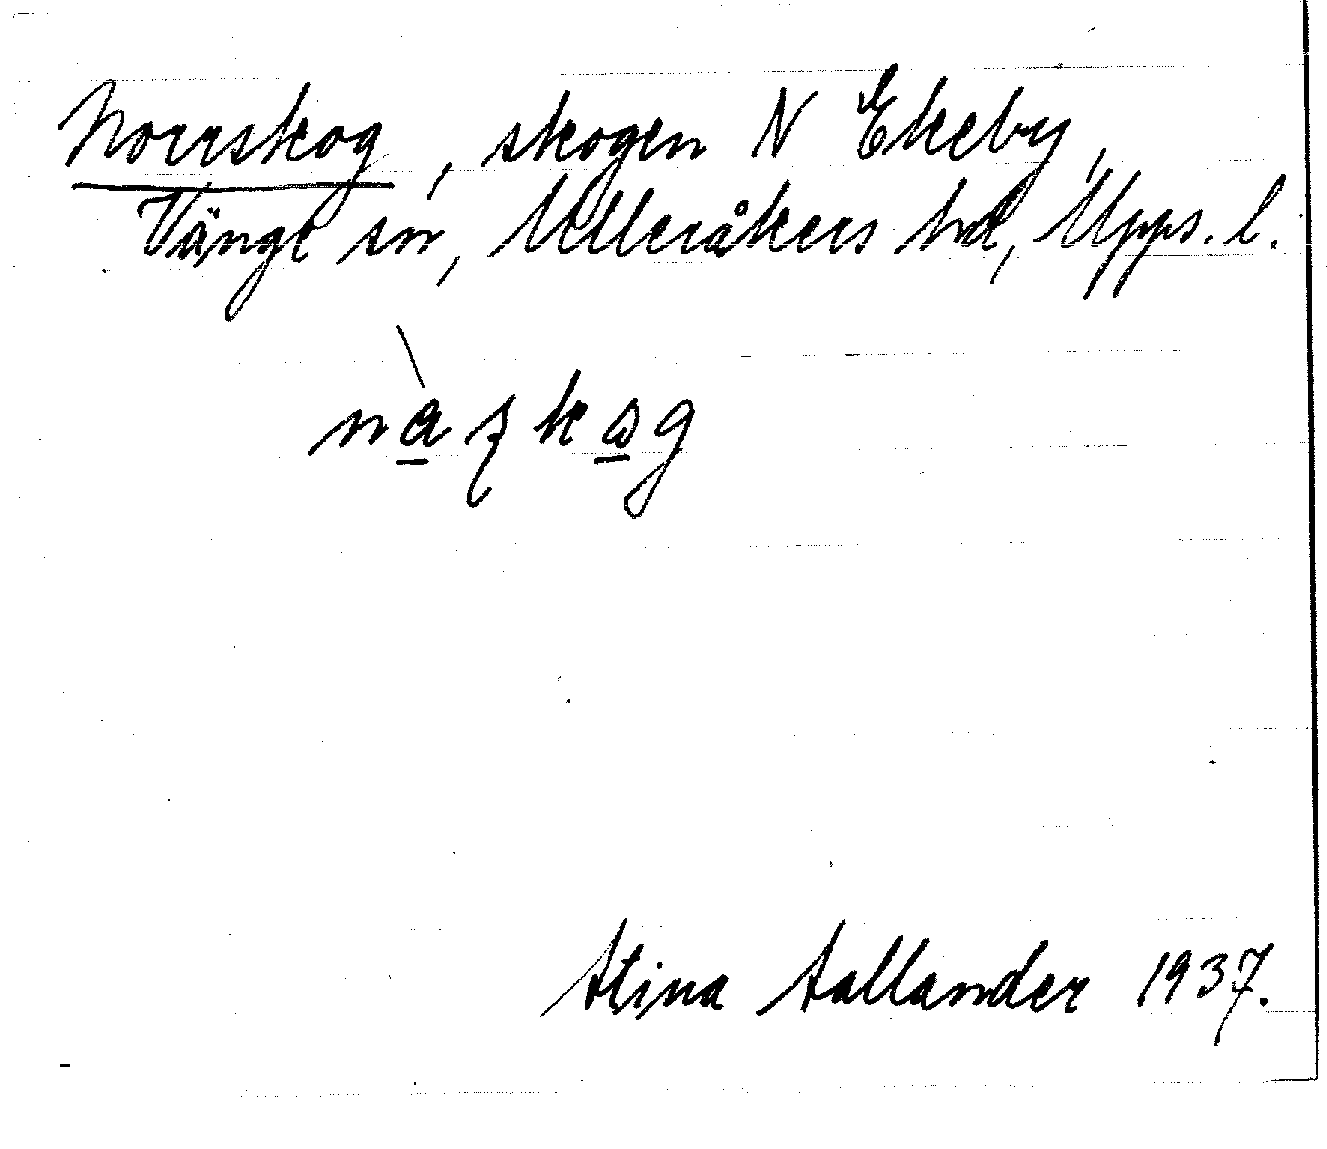 Norrskog, skogen N Ekeby,
Vänge sn, Ulleråkers hd, Upps. l.
Stina Sallander 1937.